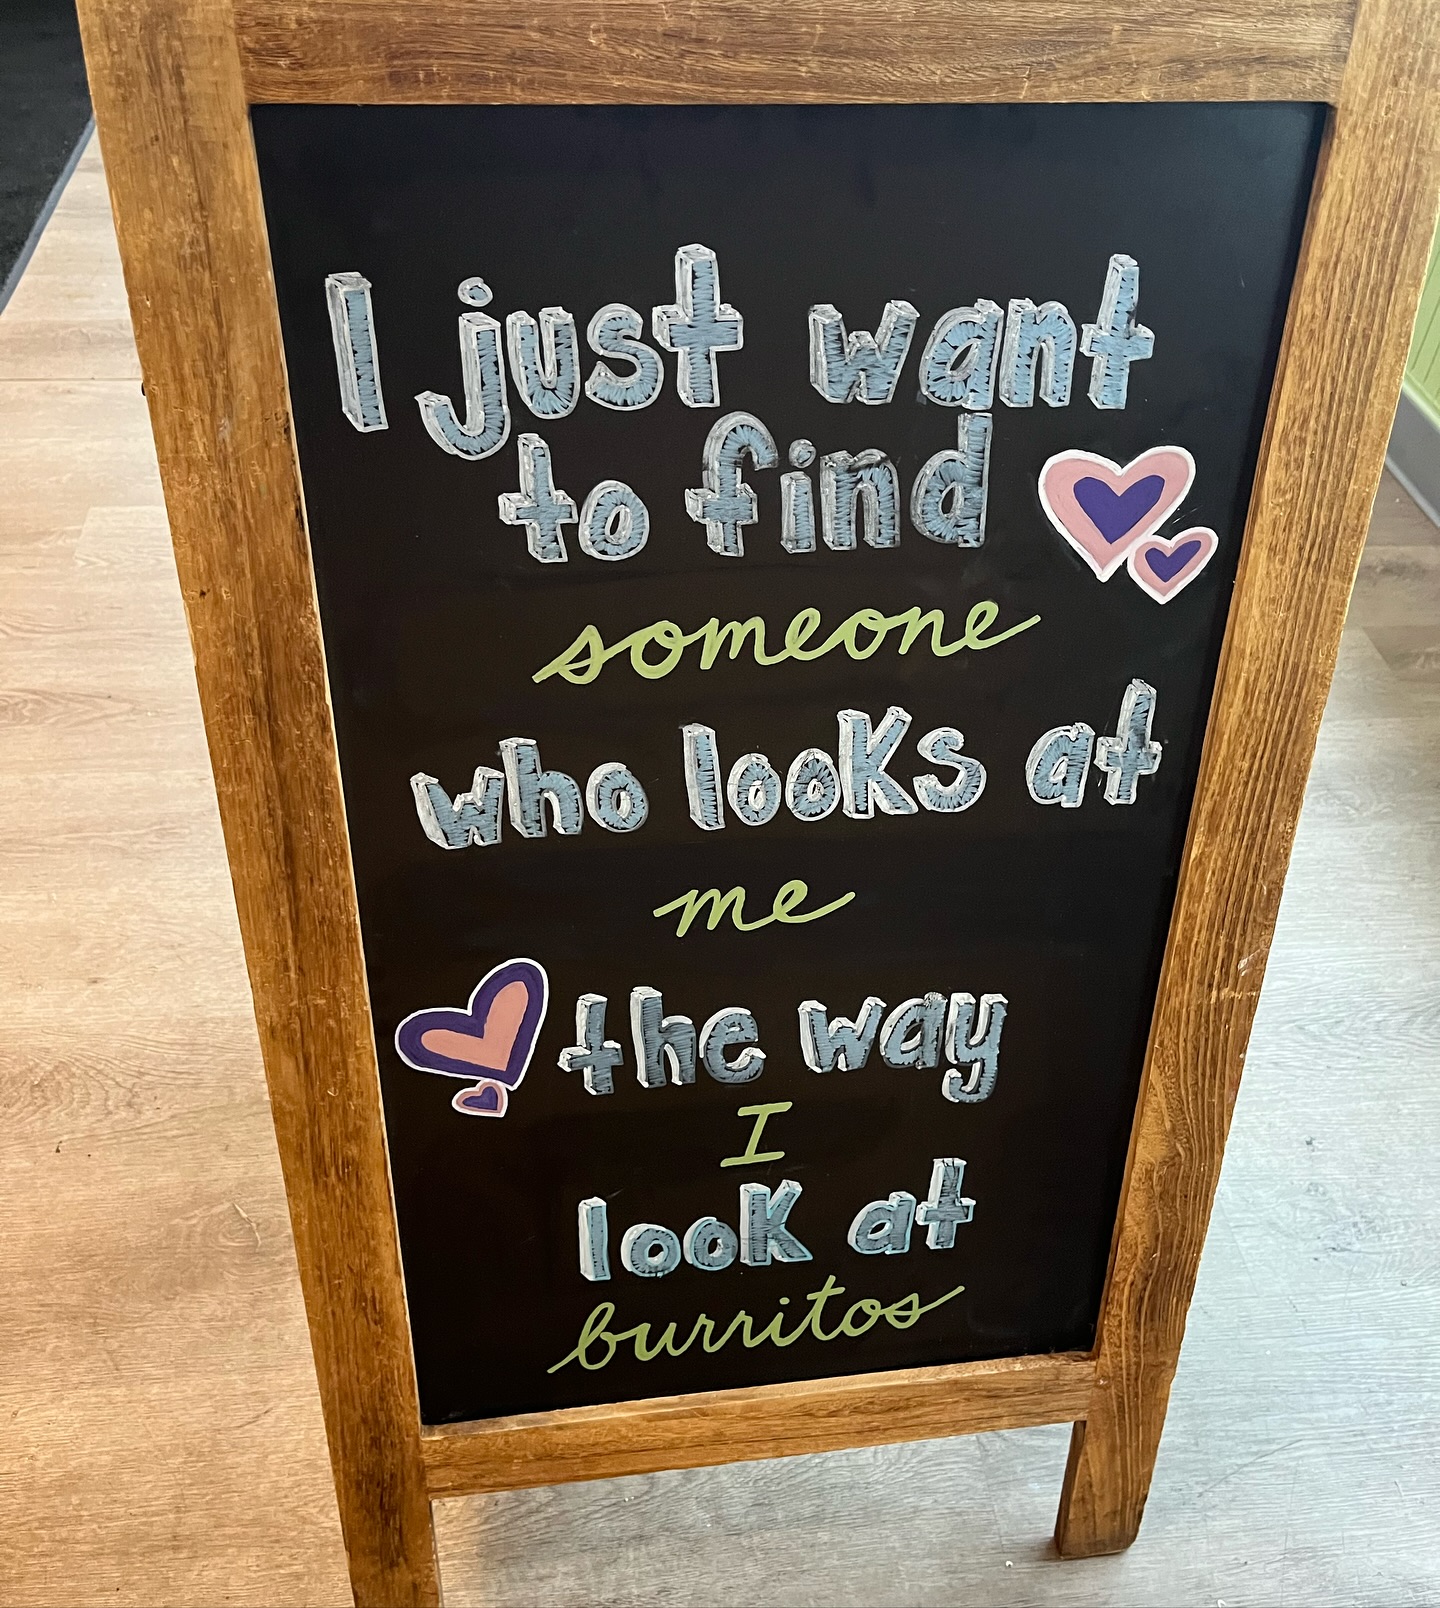 I just want
to find
someone
who looks at
me
the way
I
look at
burritos